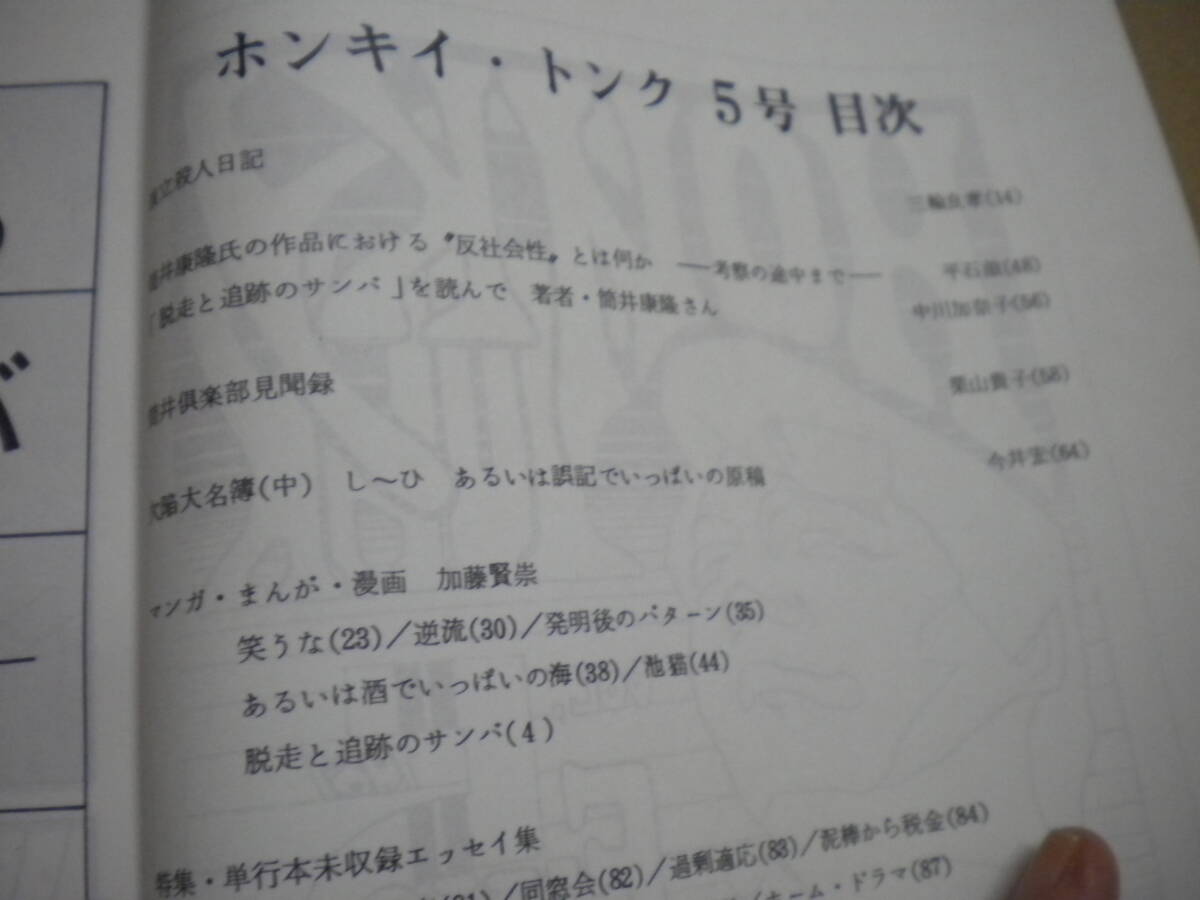 ホンキイ・トンク 5号 目次
立殺人日記
三輪良孝(14)
井康隆氏の作品における〝反社会性〟とは何か ――考察の途中まで―― 平石滋(48)
「脱走と追跡のサンバ」を読んで 著者・筒井康隆さん 中川加奈子(56)
筒井倶楽部見聞録 栗山貴子(58)
大名簿(中) し～ひ あるいは誤記でいっぱいの原稿 今井宏(64)
マンガ・まんが・漫画 加藤賢崇
笑うな(23)／逆流(30)／発明後のパターン(35)
あるいは酒でいっぱいの海(38)／池猫(44)
脱走と追跡のサンバ(4)
特集・単行本未収録エッセイ集
(81)／同窓会(82)／過剰適応(83)／泥棒から税金(84)
／ホーム・ドラマ(87)